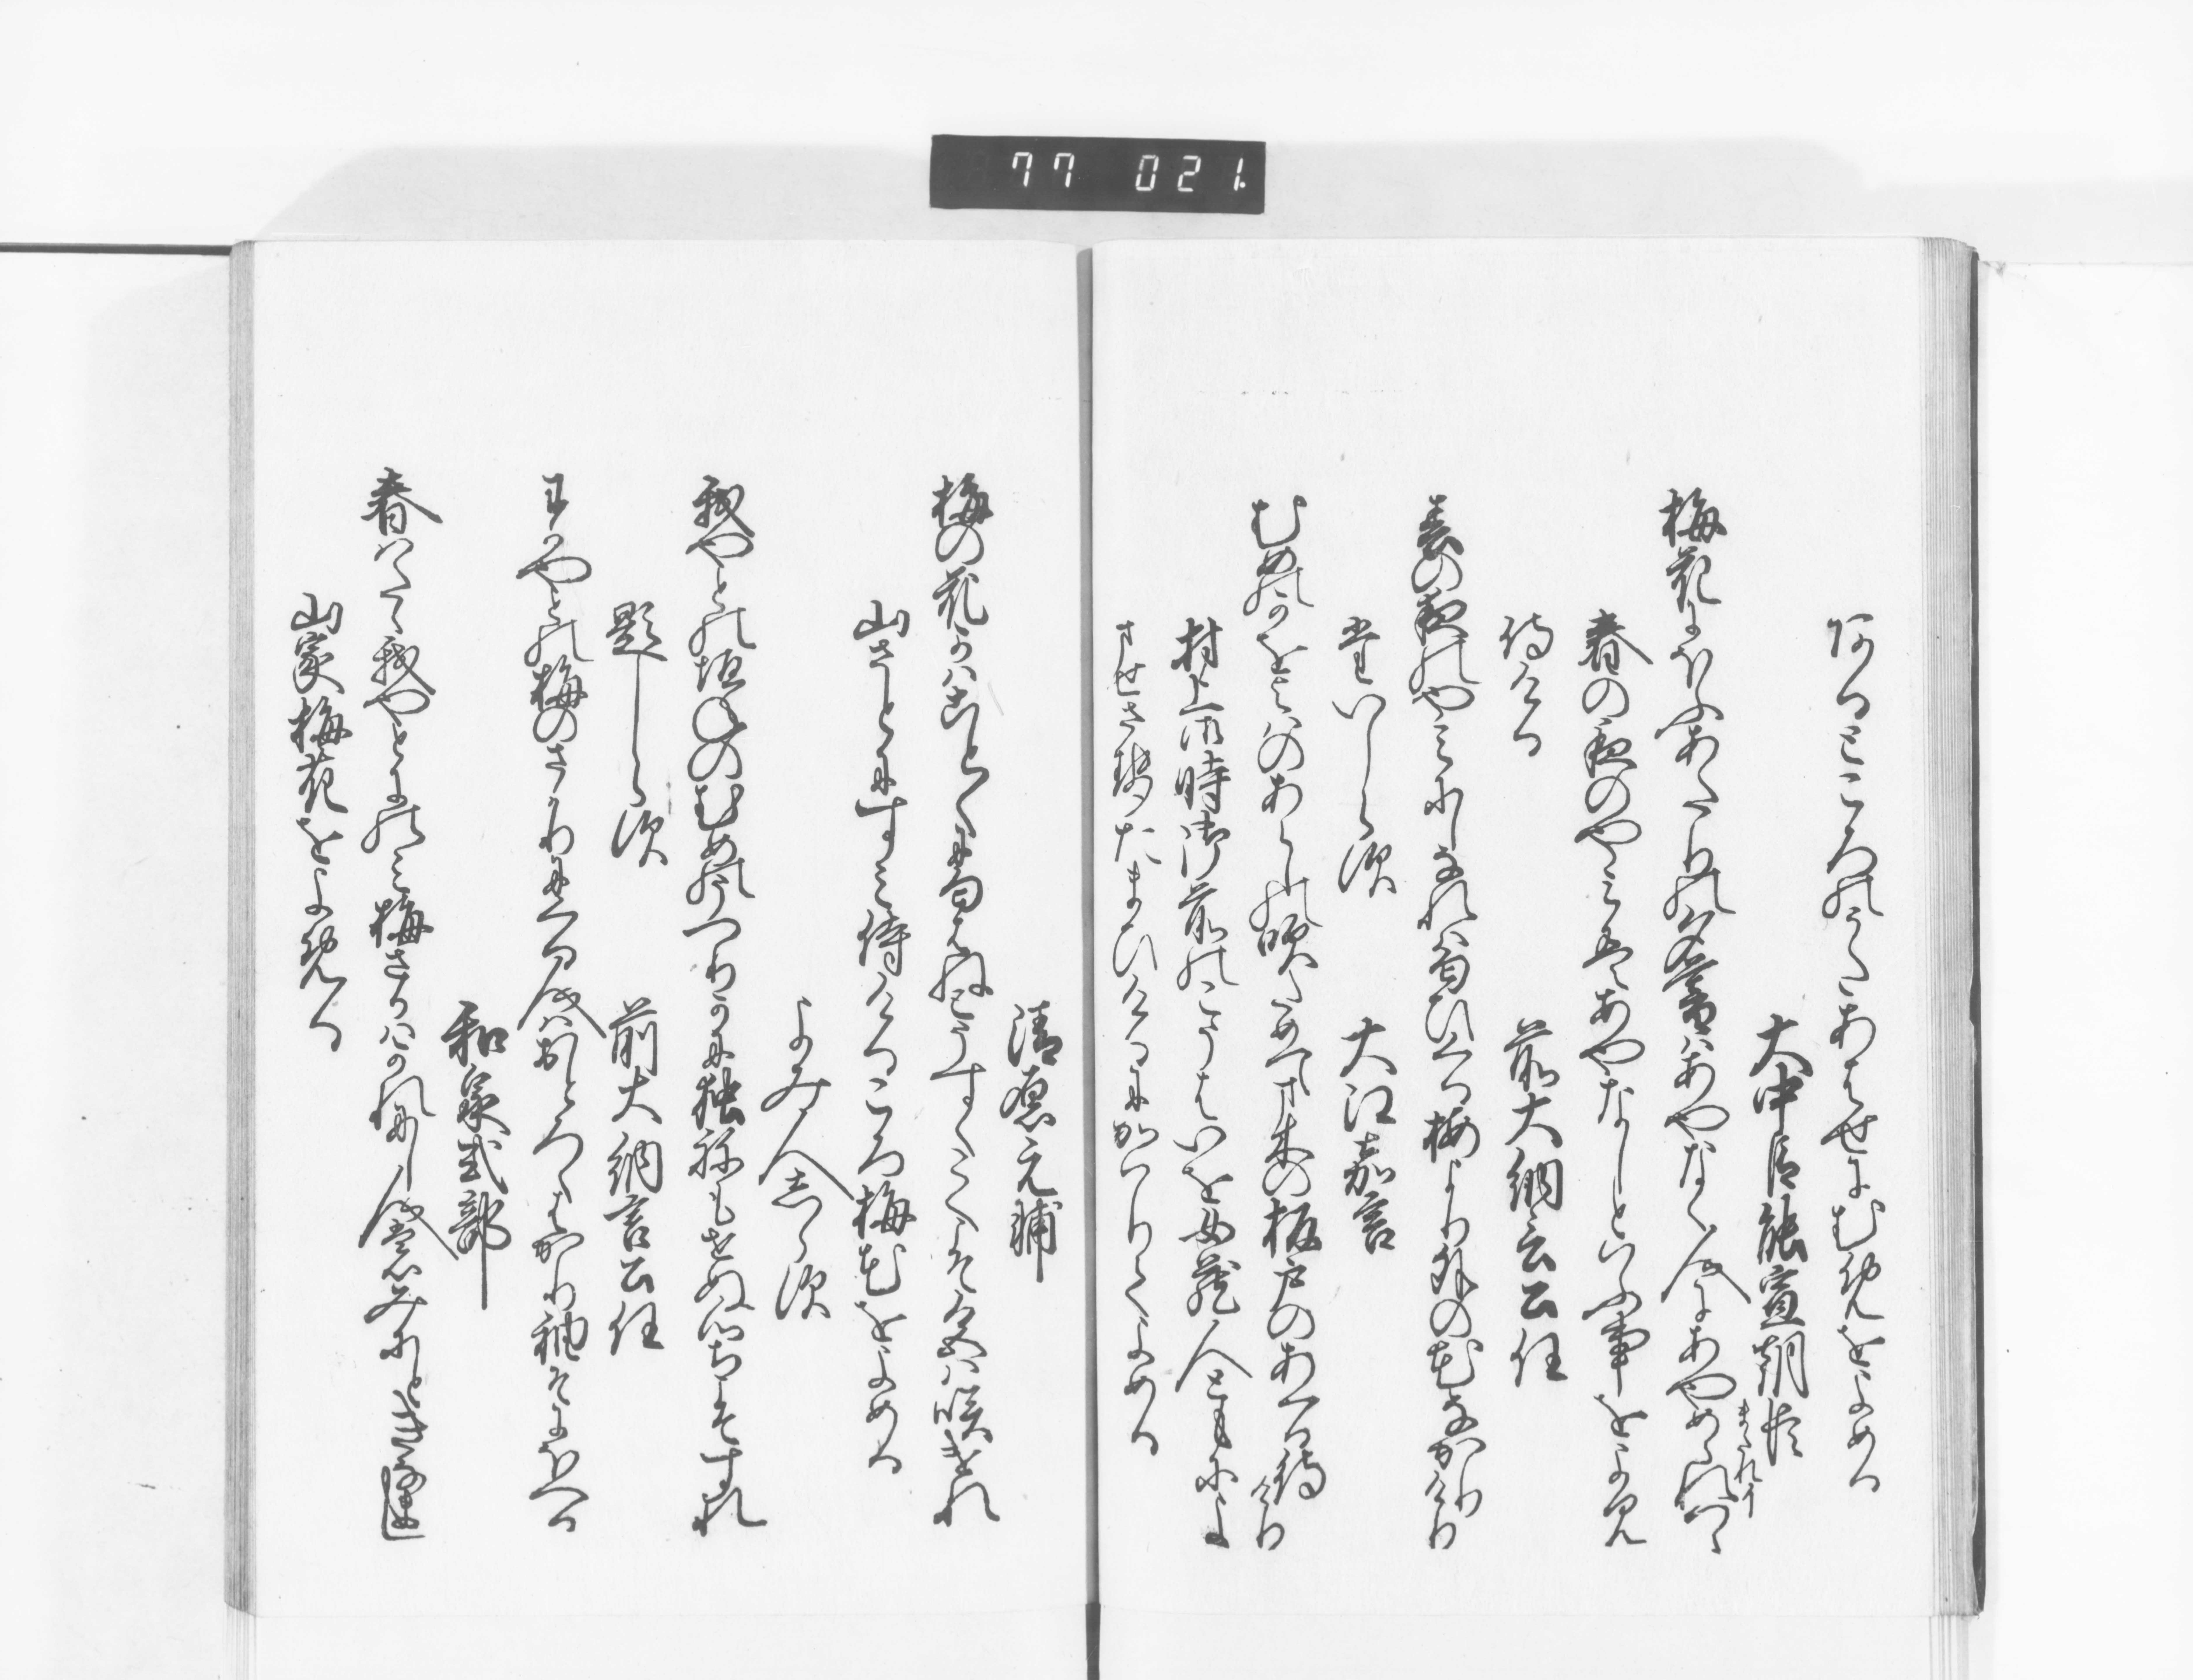 77 021
ある所のうたあはせにむめをよめる
大中臣能宣朝臣
梅花にほふあたりの夕暮はあやなく人にあやめられつゝ
またれイ
春の夜のやみはあやなしといふ事をよみ
侍ける
前大納言公任
春の夜のやみにしなれは匂ひくる梅より外の花なかりけり
題しらす
大江嘉言
むめかかをよはのあらしの吹ためてま木の板戸のあくる待けり
村上御時御前のこうはいを女蔵人ともによ
ませさせたまひけるにかはりてよめる
清原元輔
梅の花かはことことに匂はねとうすくこくこそ色は咲けれ
山さとにすみ侍けるころ梅花をよめる
よみ人しらす
我やとの垣ねのむめのうつりかに独ねもせぬ心ちこそすれ
題しらす
前大納言公任
わかやとの梅のさかりにくる人はおとろくはかり袖そにほへる
和泉式部
春はたゝ我やとにのみ梅さかはかれにし人もみにときなまし
山家梅花をよめる